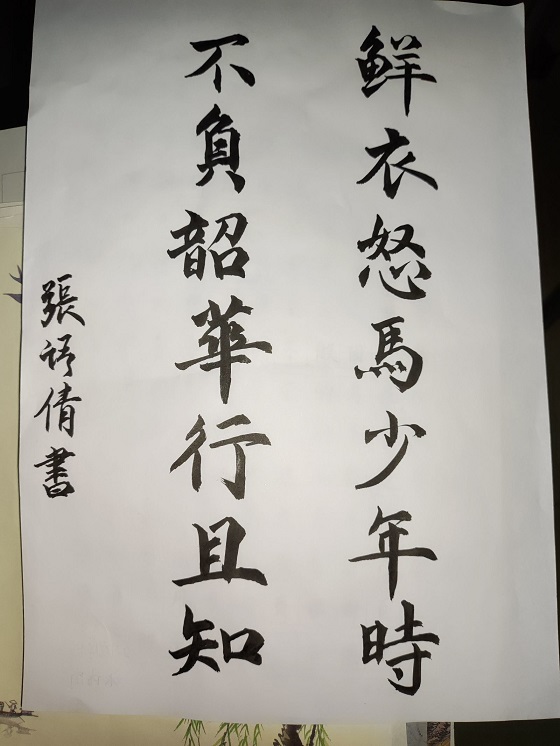 鮮衣怒馬少年時
不負韶華行且知
張語倩書